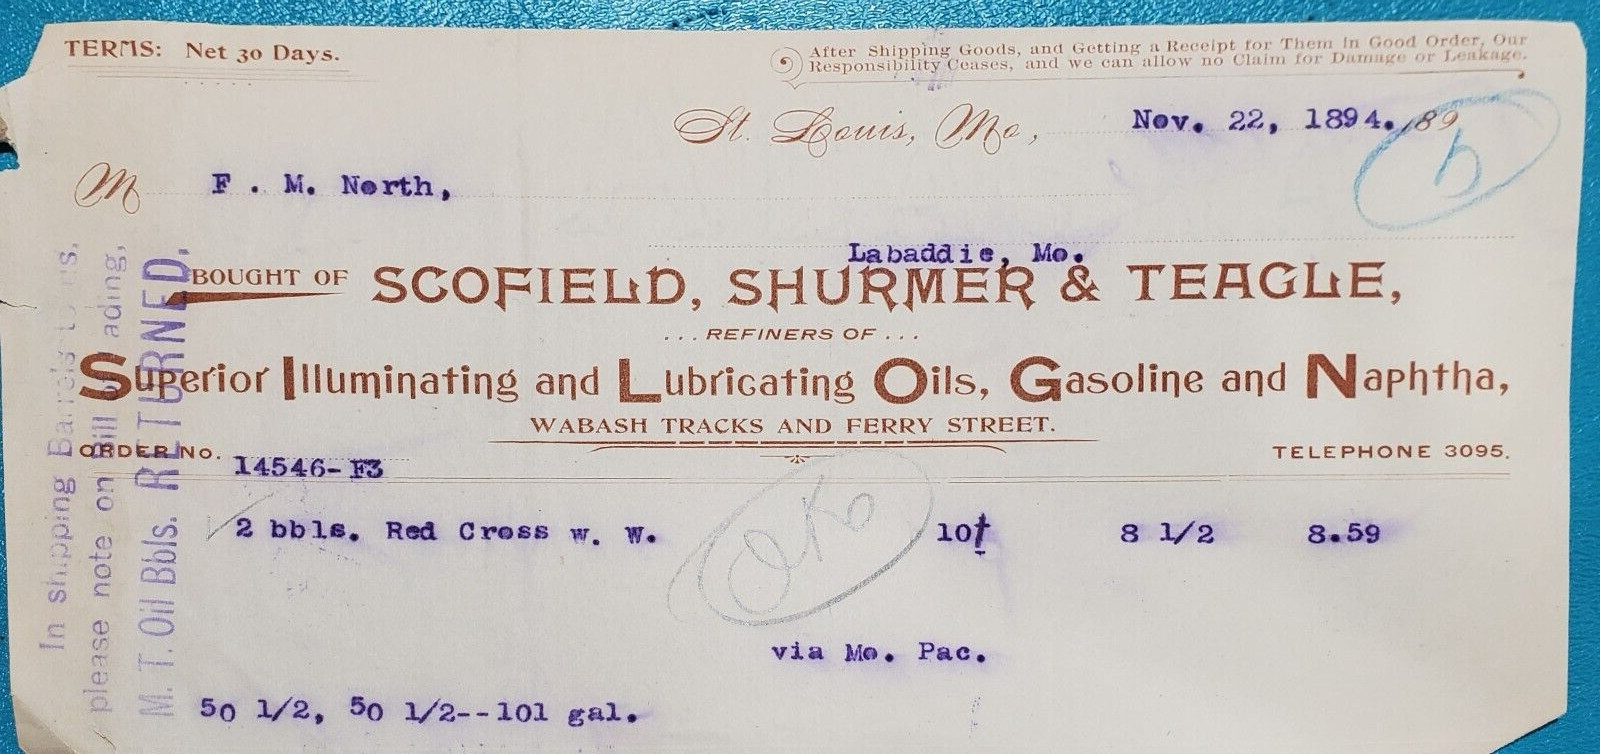 TERMS: Net 30 Days.
After Shipping Goods, and Getting a Receipt for Them in Good Order, Our
Responsibility Ceases, and we can allow no Claim for Damage or Leakage.
St. Louis, Mo, Nov. 22, 1894. 189
M F. M. North,
Labaddie, Mo.
BOUGHT OF SCOFIELD, SHURMER & TEAGLE,
...REFINERS OF...
Superior Illuminating and Lubricating Oils, Gasoline and Naphtha,
WABASH TRACKS AND FERRY STREET.
ORDER NO. 14546-F3
TELEPHONE 3095.
2 bbls. Red Cross w. W. 101 8 1/2 8.59
OK
via Mo. Pac.
50 1/2, 50 1/2--101 gal.
In shipping Barrels
please note on Bill ading,
M. T. Oil Bbls. RETURNED.